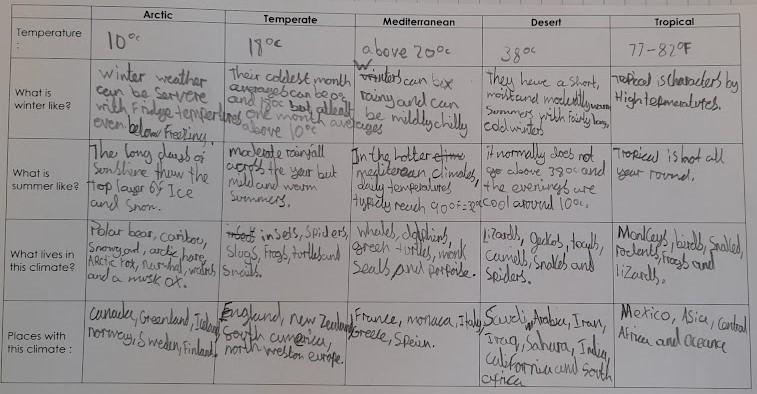 Arctic Temperate Mediterranean Desert Tropical
Temperature
:
10°c
18°c
above 20°c
38°c
77-82°F
What is
winter like?
winter weather
can be servere
with Fridge tempertures
even below freezing.
Their coldest month
averages can be 0°
and 18°c but atleast
one month averages
above 10°c
Winters can be
rainy and can
be mildly chilly
They have a short,
moist and modestly warm
Summers with fairly long,
cold winters
Tropical is characters by
High temperatures.
What is
summer like?
The long days of
sunshine thaw the
top layer of Ice
and snow.
moderate rainfall
across the year but
mild and warm
summers.
In the hotter
mediterean climates,
daily temperatures
typicly reach 90°F=32°c
it normally does not
go above 38°c and
the evenings are
cool around 10°c.
Tropical is hot all
year round.
What lives in
this climate?
Polar bear, caribou,
Snowy owl, arctic hare,
Arctic Fox, narwhal, walrus
and a musk ox.
insets, Spiders,
Slugs, frogs, turtles and
Snails.
whales, dolphins,
green turtles, monk
Seals and porpoise.
Lizards, Geckos, toads,
Camels, Snakes and
Spiders.
Monkeys, birds, Snakes,
rodents, frogs and
lizards.
Places with
this climate :
Canada, Greenland, Iceland
norway, Sweden, Finland
England, new Zealand
South america,
north weston europe.
France, monaca, Italy,
Greece, Spein.
Saudi Arabia, Iran,
Iraq, Sahara, India,
California and South
africa
Mexico, Asia, Central
Africa and Oceance